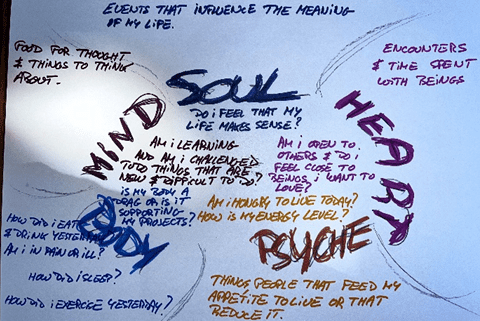 EVENTS THAT INFLUENCE THE MEANING
OF MY LIFE.
FOOD FOR THOUGHT
& THINGS TO THINK
ABOUT.
ENCOUNTERS
& TIME SPENT
WITH BEINGS
SOUL
DO I FEEL THAT MY
LIFE MAKES SENSE?
MIND
AM I LEARNING
AND AM I CHALLENGED
TO DO THINGS THAT ARE
NEW & DIFFICULT TO DO?
HEART
AM I OPEN TO
OTHERS & DO I
FEEL CLOSE TO
BEINGS I WANT TO
LOVE?
IS MY BODY A
DRAG OR IS IT
SUPPORTING
MY PROJECTS?
BODY
HOW DID I EAT
& DRINK YESTERDAY
AM I IN PAIN OR ILL?
HOW DID I SLEEP?
HOW DID I EXERCISE YESTERDAY?
AM I HUNGRY TO LIVE TODAY?
HOW IS MY ENERGY LEVEL?
PSYCHE
THINGS PEOPLE THAT FEED MY
APPETITE TO LIVE OR THAT
REDUCE IT.